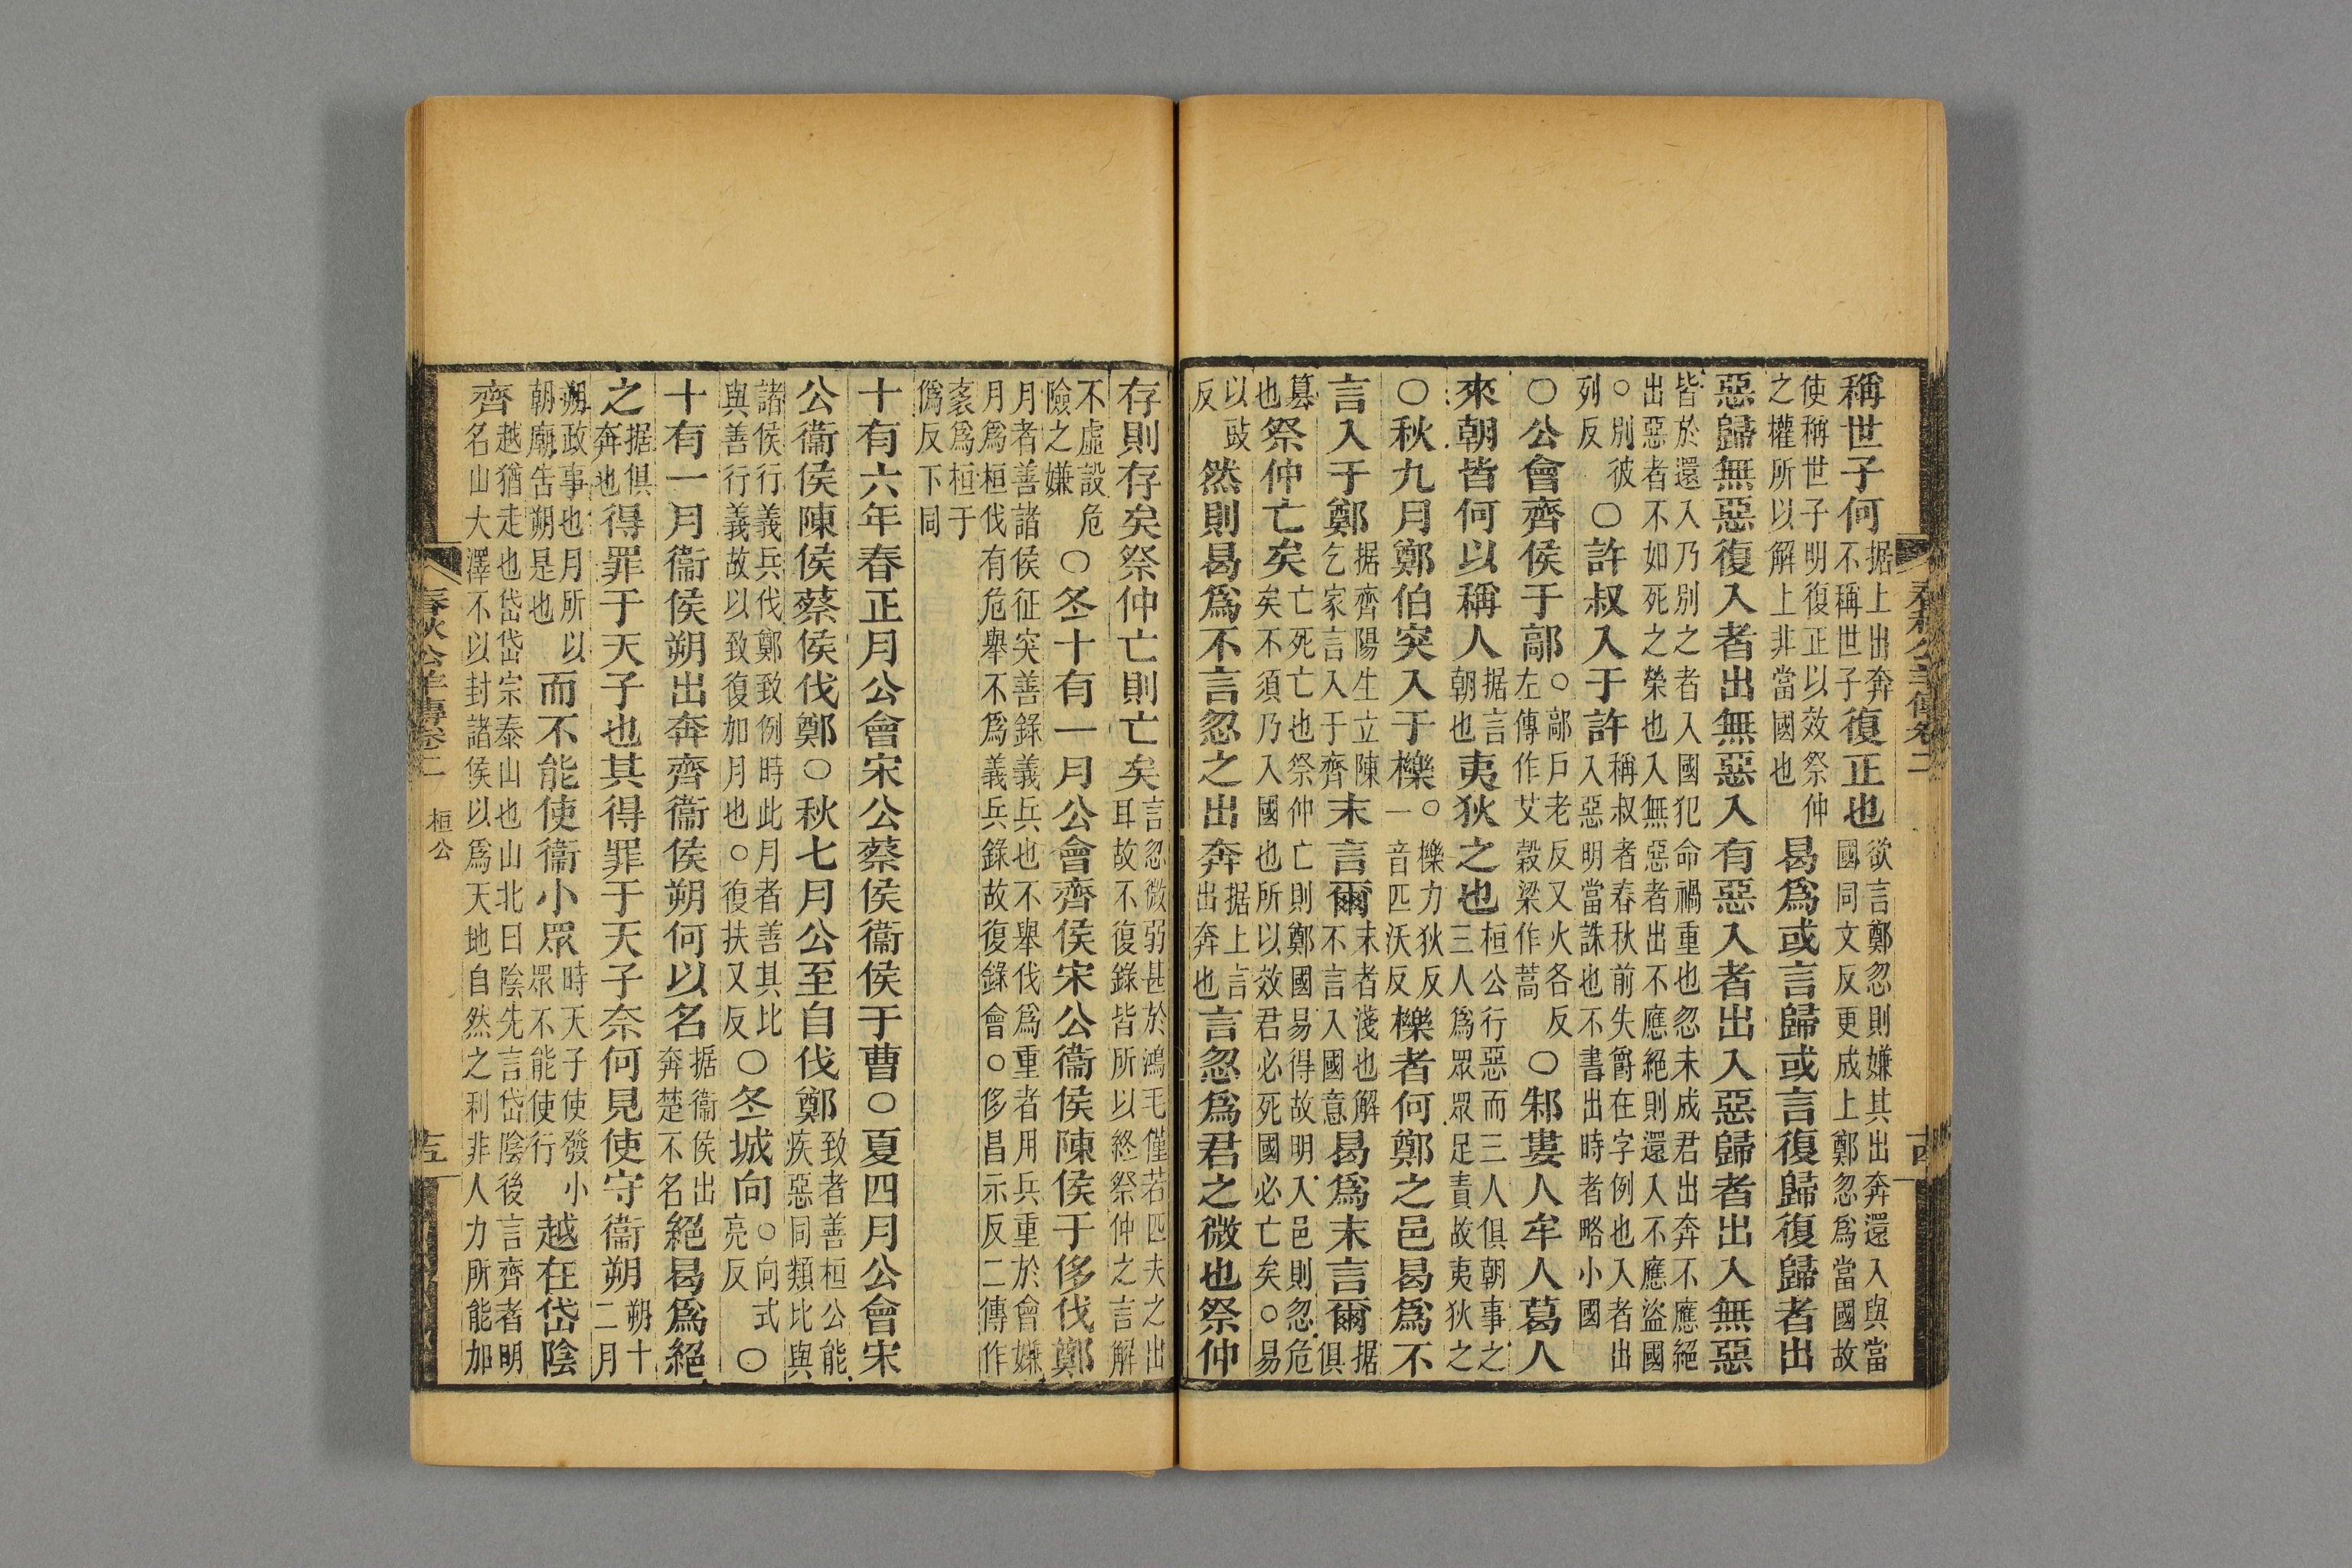 稱世子何据上出奔不稱世子復正也欲言鄭忽則嫌其出奔還入與當國同文反更成上鄭忽爲當國故
使稱世子明復正以效祭仲之權所以解上非當國也曷爲或言歸或言復歸復歸者出
惡歸無惡復入者出無惡入有惡入者出入惡歸者出入無惡
皆於還入乃別之者入國犯命禍重也忽未成君出奔不應絕出惡者不如死之榮也入無惡者出不應絕則還入不應盜國
○別彼列反○許叔入于許稱叔者春秋前失爵在字例也入者出入惡明當誅也不書出時者略小國
○公會齊侯于鄗○鄗戶老反又火各反左傳作艾穀梁作蒿○邾婁人牟人葛人
來朝皆何以稱人据言朝也夷狄之也桓公行惡而三人俱朝事之三人爲眾眾足責故夷狄之
○秋九月鄭伯突入于櫟○櫟力狄反一音匹沃反櫟者何鄭之邑曷爲不
言入于鄭据齊陽生立陳乞家言入于齊末言爾末者淺也解不言入國意曷爲末言爾据俱
篡也祭仲亡矣亡死亡也祭仲亡則鄭國易得故明入邑則忽危矣不須乃入國也所以效君必死國必亡矣○易
以豉反然則曷爲不言忽之出奔据上言出奔也言忽爲君之微也祭仲
存則存矣祭仲亡則亡矣言忽微弱甚於鴻毛僅若匹夫之出耳故不復錄皆所以終祭仲之言解
不虛設危險之嫌○冬十有一月公會齊侯宋公衞侯陳侯于侈伐鄭
月者善諸侯征突善錄義兵也不舉伐爲重者用兵重於會嫌月爲桓伐有危舉不爲義兵錄故復錄會○侈昌示反二傳作
袲爲桓于僞反下同
十有六年春正月公會宋公蔡侯衞侯于曹○夏四月公會宋
公衞侯陳侯蔡侯伐鄭○秋七月公至自伐鄭致者善桓公能疾惡同類比與
諸侯行義兵伐鄭致例時此月者善其比與善行義故以致復加月也○復扶又反○冬城向○向式亮反○
十有一月衞侯朔出奔齊衞侯朔何以名据衞侯出奔楚不名絕曷爲絕
之据俱奔也得罪于天子也其得罪于天子奈何見使守衞朔朔十二月
朔政事也月所以朝廟告朔是也而不能使衞小眾時天子使發小眾不能使行越在岱陰
齊越猶走也岱岱宗泰山也山北曰陰先言岱陰後言齊者明名山大澤不以封諸侯以爲天地自然之利非人力所能加
春秋公羊傳卷二 桓公